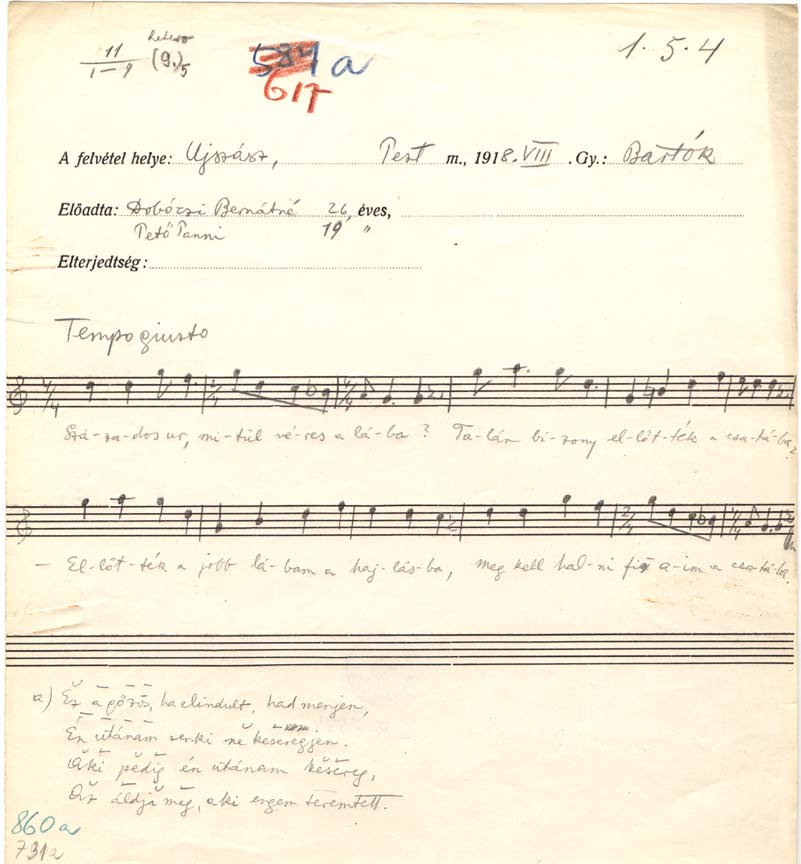 11
1–9 (9.)5
581a
617
1. 5. 4
A felvétel helye: Ujszász, Pest m., 1918. VIII .Gy.: Bartók
Előadta: Dobóczi Bernátné 26, éves,
Pető Panni 19 "
Elterjedtség:
Tempo giusto
4/4 2/4 4/4
Szá-za-dos ur, mi-tül vé-res a lá-ba? Ta-lán bi-zony el-lőt-ték a csa-tá-ba?
2/4 4/4
– El-lőt-ték a jobb lá-bam a haj-lás-ba, meg kell hal-ni fi-a-im a csa-tá-ba.
a) Ez a gőzös, ha elindult, had menjen,
Én utánam senki ne keseregjen.
Aki pedig én utánam kesereg,
Az áldja meg, aki engem teremtett.
860a
731a